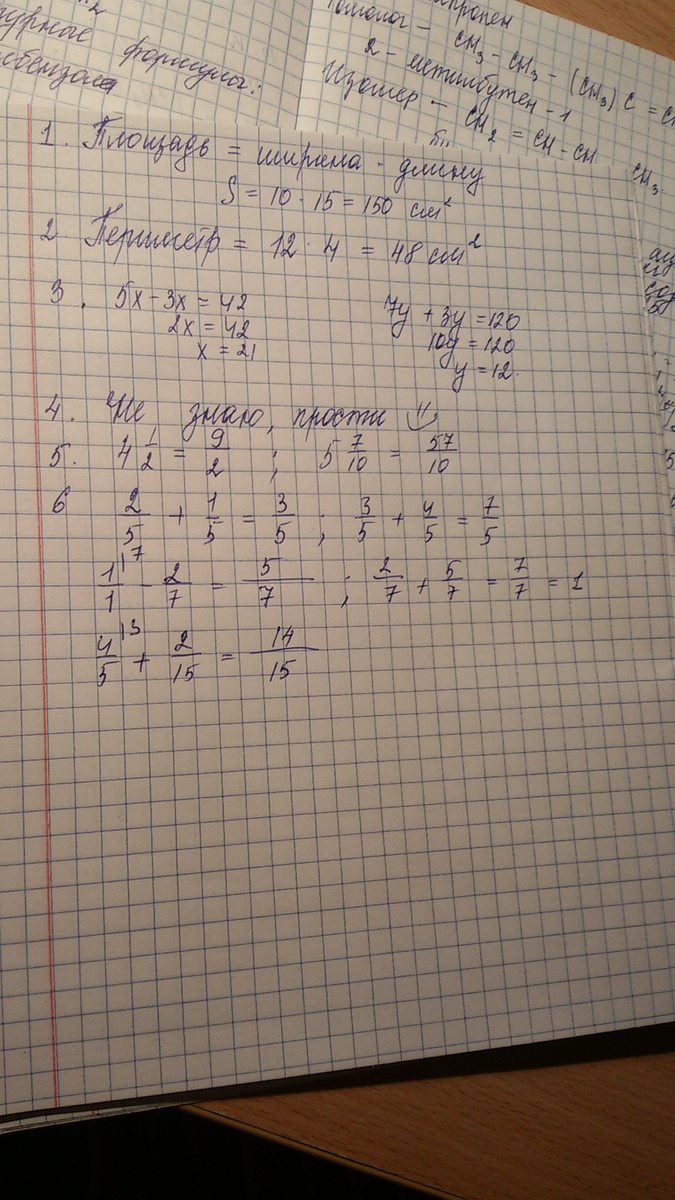 формулы:
Гомолог - CH₃ - CH₃ - (CH₃) C =
2 - метилбутен - 1
Изомер - CH₂ = CH - CH
CH₃
1. Площадь = ширина · длину
S = 10 · 15 = 150 см²
2 Периметр = 12 · 4 = 48 см²
3. 5x - 3x = 42
2x = 42
x = 21
7y + 3y = 120
10y = 120
y = 12.
4. Не знаю, прости
5. 4 1/2 = 9/2 ; 5 7/10 = 57/10
6 2/5 + 1/5 = 3/5 ; 3/5 + 4/5 = 7/5
1/1 |7 - 2/7 = 5/7 ; 2/7 + 5/7 = 7/7 = 1
4/5 |3 + 2/15 = 14/15